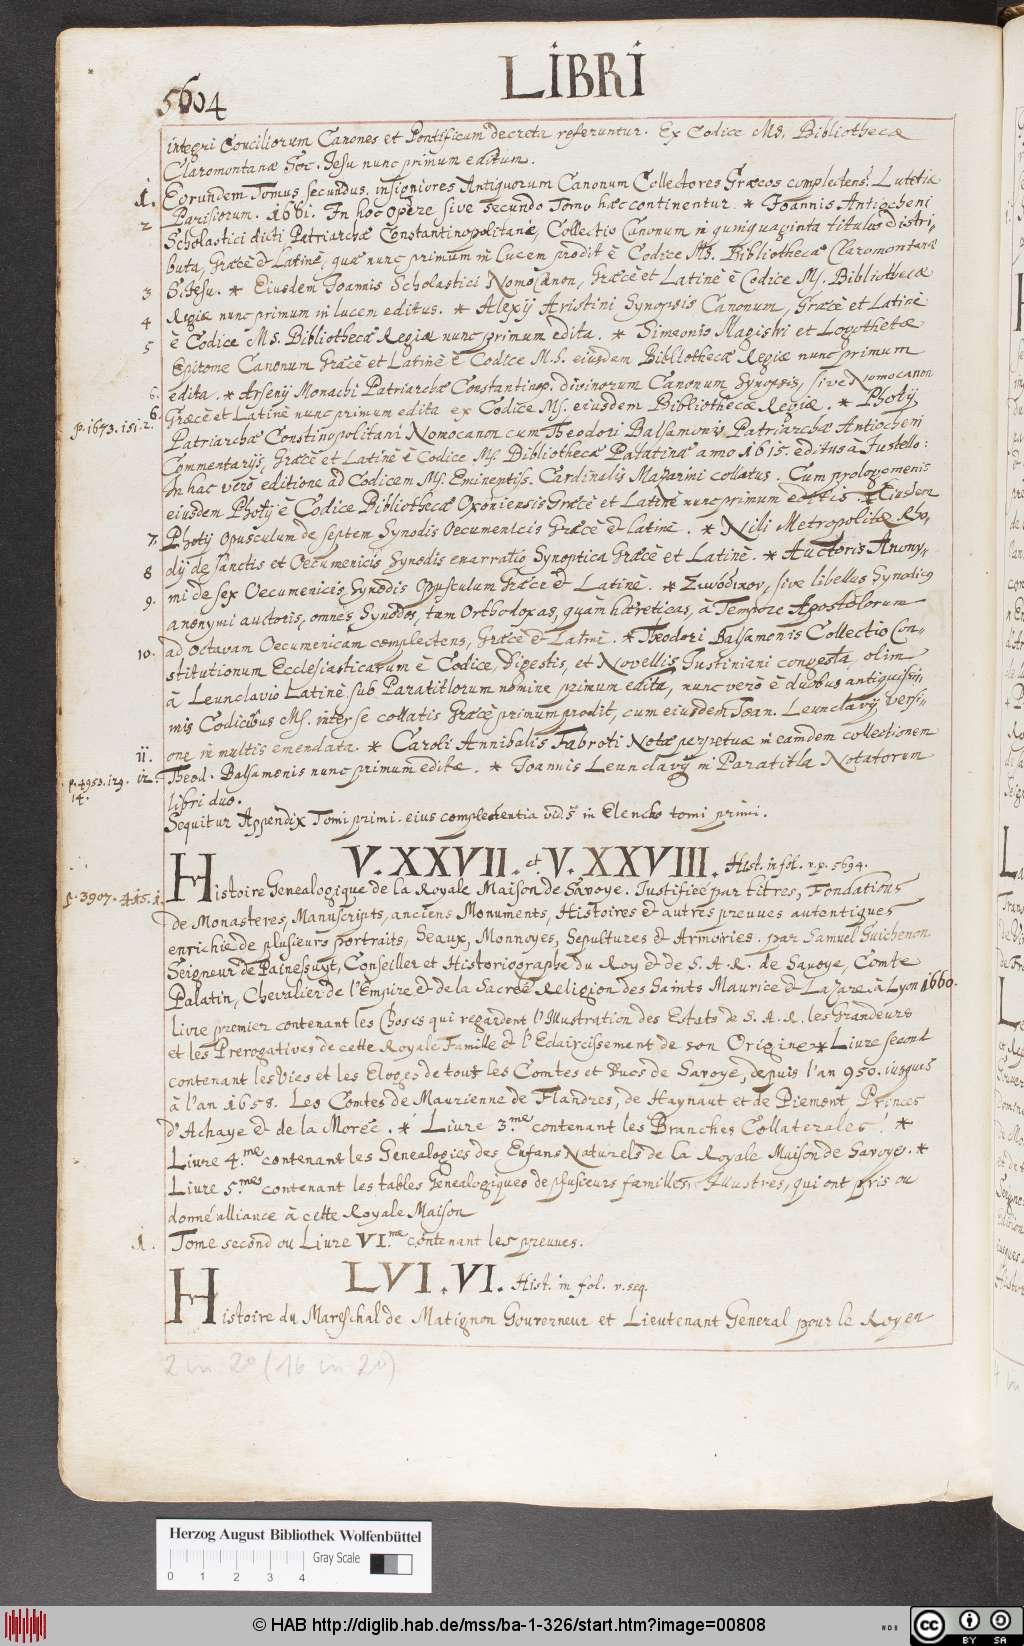 LIBRI
5604
integri Conciliorum Canones et Pontificum decreta referuntur. Ex Codice MS. Bibliothecæ
Claromontanæ Soc. Jesu nunc primum editum.
1. Eorundem Tomus secundus, insigniores Antiquorum Canonum Collectores Græcos complectens. Lutetiæ
Parisiorum. 1661. In hoc opere sive secundo Tomo hæc continentur * Joannis Antiocheni
2 Scholastici dicti Patriarchæ Constantinopolitanæ, Collectio Canonum in quinquaginta titulos distri-
buta, Græcè & Latinè, quæ nunc primum in Lucem prodit è Codice MS. Bibliothecæ Claromontanæ
3 S. Jesu. * Eiusdem Joannis Scholastici Nomocanon, Græcè et Latinè è Codice Ms. Bibliothecæ
4 Regiæ nunc primum in lucem editus. * Alexij Aristini Synopsis Canonum, Græcè et Latinè
5 è Codice Ms. Bibliothecæ Regiæ nunc primum edita. * Simeonis Magistri et Logothetæ
Epitome Canonum Græcè et Latinè è Codice M.S. eiusdem Bibliothecæ Regiæ nunc primum
6. edita. * Arsenij Monachi Patriarchæ Constantinop. divinorum Canonum Synopsis, sive Nomocanon
p. 1673. 151. 2. 6. Græcè et Latinè nunc primum edita ex Codice Ms. eiusdem Bibliothecæ Regiæ. * Photij
Patriarchæ Constinopolitani Nomocanon cum Theodori Balsamonis Patriarchæ Antiocheni
Commentarijs, Græcè et Latinè è Codice Ms. Bibliothecæ Palatinæ anno 1615. editus à Justello:
In hac verò editione ad Codicem Ms. Eminentiss. Cardinalis Mazarini collatus. Cum prolegomenis
eiusdem Photij è Codice Bibliothecæ Oxoniensis Græcè et Latinè nunc primum editis. * Eiusdem
7. Photij opusculum de septem Synodis Oecumenicis Græcè & Latinè. * Nili Metropolitæ Rho-
8 dij de sanctis et Oecumenicis Synodis enarratio Synoptica Græcè et Latinè. * Auctoris Anony-
9. mi de sex Oecumenicis Synodis Opusculum Græcè & Latinè. * Συνόδικον, sive libellus Synodicus
anonymi auctoris, omnes Synodos, tam Orthodoxas, quàm hæreticas, à Tempore Apostolorum
10. ad octavam Oecumenicam complectens, Græcè & Latinè. * Theodori Balsamonis Collectio Con-
stitutionum Ecclesiasticarum è Codice, Digestis, et Novellis Justiniani congesta, olim
à Leunclavio Latinè, sub Paratitlorum nomine primum edita, nunc verò è duobus antiquissi-
mis Codicibus Ms. inter se collatis Græcè primum prodit, cum eiusdem Joan. Leunclavij versi-
11. one in multis emendata * Caroli Annibalis Fabroti Notæ perpetuæ in eamdem collectionem
p. 4953. 129. 12. Theod. Balsamonis nunc primum editæ. * Joannis Leunclavij in Paratitla Notatorum
14. libri duo.
Sequitur Appendix Tomi primi. eius complectentia vid. in Elencho tomi primi.
V. XXVII. et V. XXVIII. Hist. in fol. v. p. 5694.
p. 3907. 415. 1. Histoire Genealogique de la Royale Maison de Savoye. Justifiée par titres, Fondations
de Monasteres, Manuscripts, anciens Monuments, Histoires & autres preuues autentiques
enrichie de plusieurs portraits, Seaux, Monnoyes, Sepultures & Armoiries. par Samuel Guichenon
Seigneur de Painessuyt, Conseiller et Historiographe du Roy & de S. A. R. de Savoye, Comte
Palatin, Chevalier de l'Empire & de la Sacrée Religion des Saints Maurice & Lazare. à Lyon 1660.
livre premier contenant les Choses qui regardent l'Illustration des Estats de S. A. R. les Grandeurs
et les Prerogatives de cette Royale Famille & l'Eclaircissement de son Origine * Livre second
contenant les Vies et les Eloges de tous les Comtes et Ducs de Savoye, depuis l'an 950. iusques
à l'an 1658. Les Comtes de Maurienne de Flandres, de Haynaut et de Piemont Princes
d'Achaye & de la Morée. * Livre 3.me contenant les Branches Collaterales. *
Livre 4.me contenant les Genealogies des Enfans Naturels de la Royale Maison de Savoye. *
Livre 5.me contenant les tables Genealogiques de plusieurs familles, Illustres, qui ont pris ou
donné alliance à cette Royale Maison
1. Tome second ou Livre VI.me contenant les preuves.
LVI. VI. Hist. in fol. v. seq.
Histoire du Mareschal de Matignon Gouverneur et Lieutenant General pour le Roy en
2 in 20 (16 in 20)
Herzog August Bibliothek Wolfenbüttel
Gray Scale
0 1 2 3 4
© HAB http://diglib.hab.de/mss/ba-1-326/start.htm?image=00808
WDB
cc BY SA